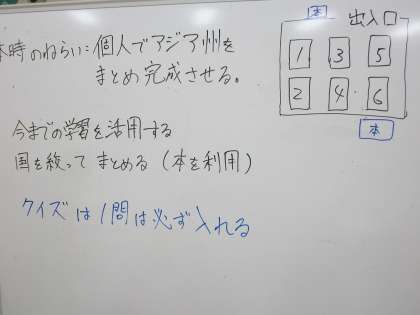 本時のねらい:個人でアジア州を
まとめ完成させる。
今までの学習を活用する
国を絞ってまとめる(本を利用)
クイズは1問は必ず入れる
本
出入口
1 3 5
2 4 6
本